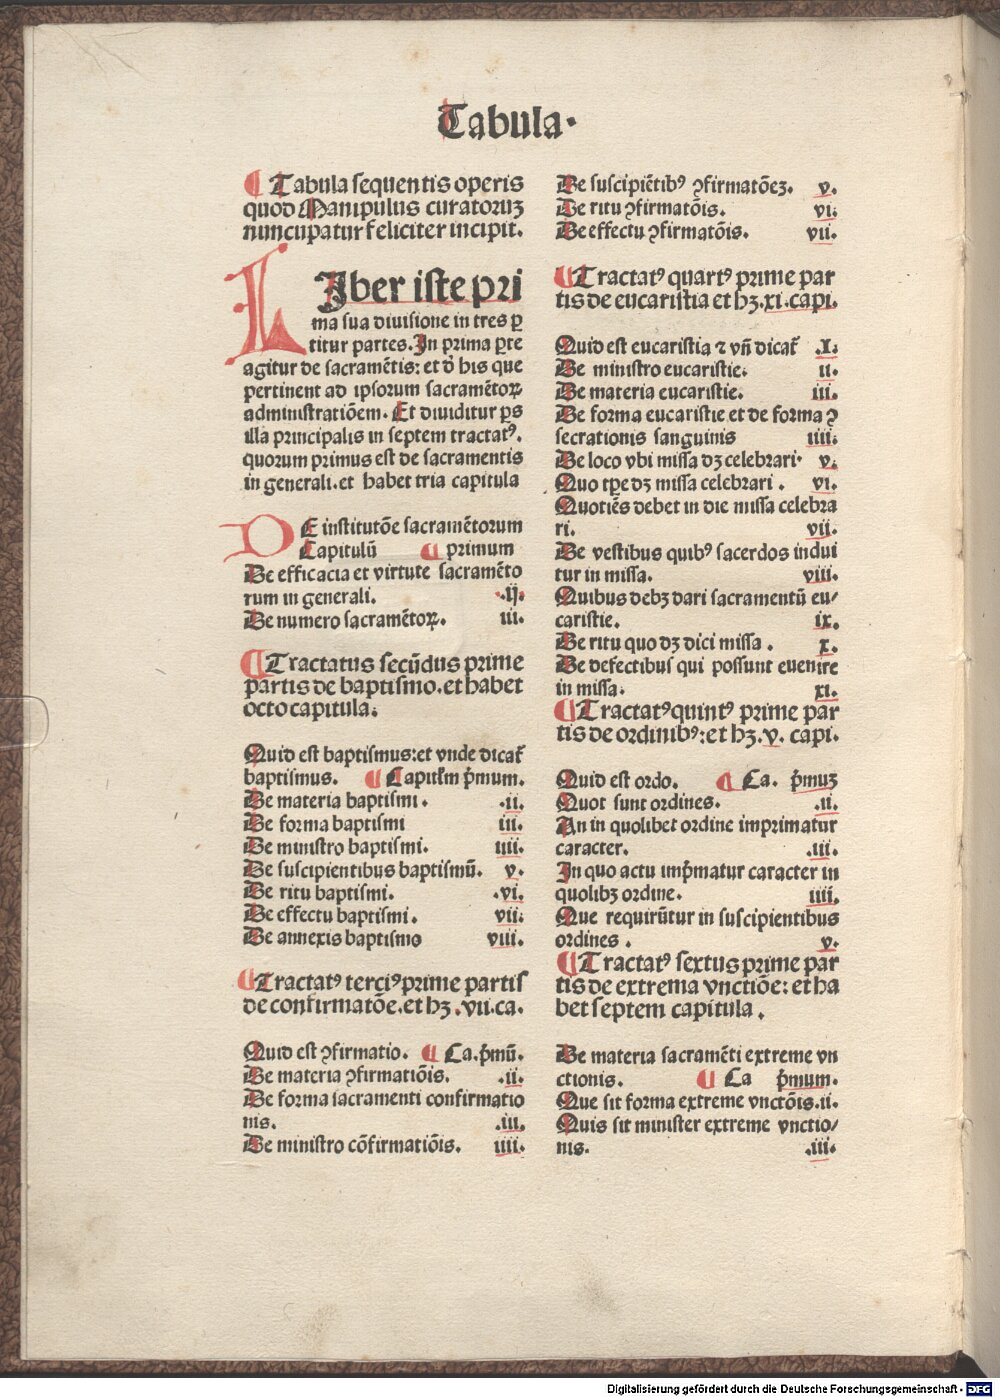 Tabula.
¶ Tabula sequentis operis
quod Manipulus curatoruꝫ
nuncupatur feliciter incipit.
LIber iste pri
ma sua diuisione in tres ꝑ
titur partes. In prima ꝑte
agitur de sacramētis: et đ his que
pertinent ad ipsorum sacramētoꝝ
administratiōem. Et diuiditur ꝑs
illa principalis in septem tractatꝰ.
quorum primus est de sacramentis
in generali. et habet tria capitula
DE institutōe sacramētorum
Capitulū ¶ primum
De efficacia et virtute sacramēto
rum in generali. .ij.
De numero sacramētoꝝ. iii.
¶ Tractatus secūdus prime
partis de baptismo. et habet
octo capitula.
Quid est baptismus: et vnde dicat᷑
baptismus. ¶ Capitłm p̄mum.
De materia baptismi. .ii.
De forma baptismi iii.
De ministro baptismi. iiii.
De suscipientibus baptismū. v.
De ritu baptismi. .vi.
De effectu baptismi. vii.
De annexis baptismo viii.
¶ Tractatꝰ terciꝰ prime partis
de confirmatōe. et hꝫ .vii. ca.
Quid est ꝯfirmatio. ¶ Ca. p̄mū.
De materia ꝯfirmatiōis. .ii.
De forma sacramenti confirmatio
nis. .iii.
De ministro cōfirmatiōis. iiii.
De suscipiētibꝰ ꝯfirmatōeꝫ. v.
De ritu ꝯfirmatōis. vi.
De effectu ꝯfirmatōis. vii.
¶ Tractatꝰ quartꝰ prime par
tis de eucaristia et hꝫ. xi. capi.
Quid est eucaristia ⁊ vñ dicat᷑ .I.
De ministro eucaristie. ii.
De materia eucaristie. iii.
De forma eucaristie et de forma ꝯ
secrationis sanguinis iiii.
De loco vbi missa dꝫ celebrari. v.
Quo tꝑe dꝫ missa celebrari. vi.
Quotiēs debet in die missa celebra
ri. vii.
De vestibus quibꝰ sacerdos indui
tur in missa. viii.
Quibus debꝫ dari sacramentū eu/
caristie. ix.
De ritu quo dꝫ dici missa. x.
De defectibus qui possunt euenire
in missa. xi.
¶ Tractatꝰ quintꝰ prime par
tis de ordinibꝰ: et hꝫ. v. capi.
Quid est ordo. ¶ Ca. p̄muꝫ
Quot sunt ordines. .ii.
An in quolibet ordine imprimatur
caracter. .iii.
In quo actu imp̄matur caracter in
quolibꝫ ordine. iiii.
Que requirūtur in suscipientibus
ordines. v.
¶ Tractatꝰ sextus prime par
tis de extrema vnctiōe: et ha
bet septem capitula.
De materia sacramēti extreme vn
ctionis. ¶ Ca p̄mum.
Que sit forma extreme vnctōis. ii.
Quis sit minister extreme vnctio/
nis. .iii.
Digitalisierung gefördert durch die Deutsche Forschungsgemeinschaft - DFG